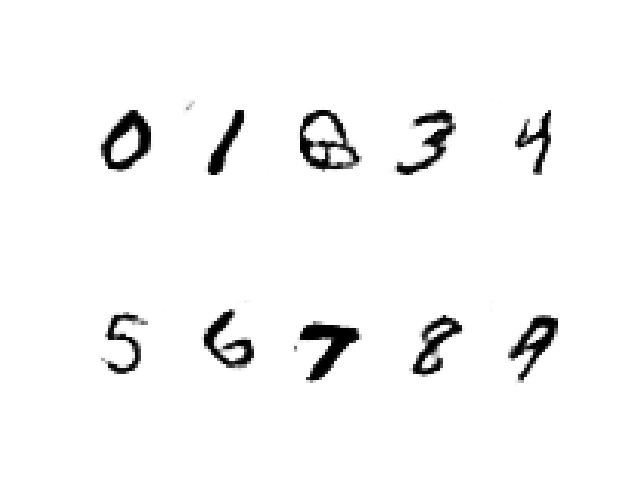 0 1 3 4
5 6 7 8 9